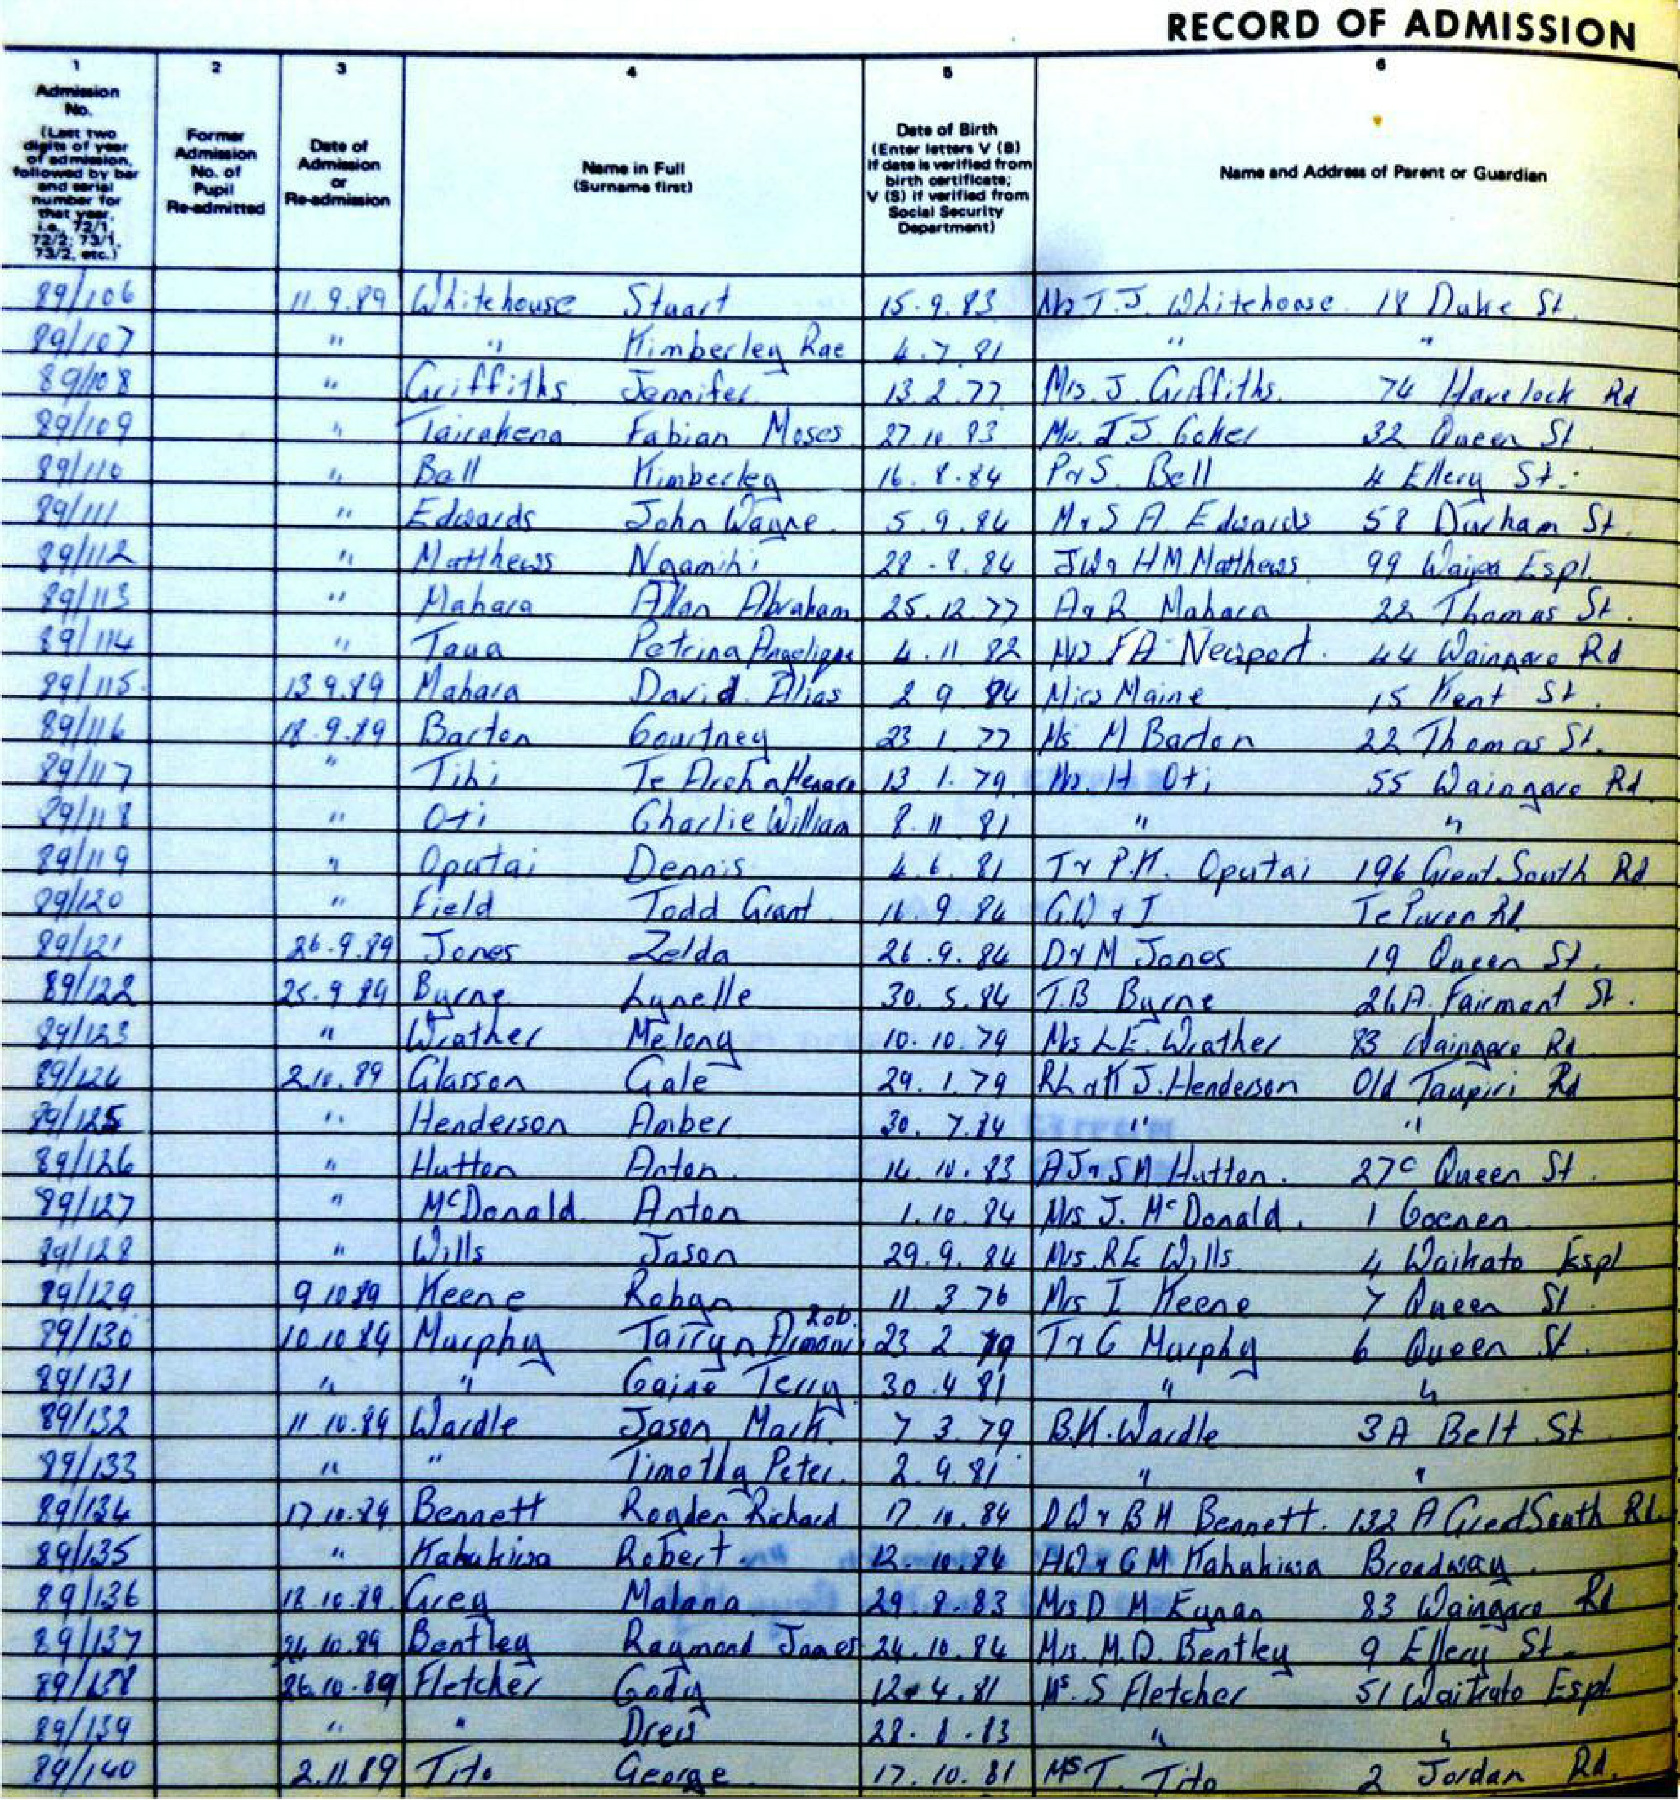 RECORD OF ADMISSION
1 2 3 4 5 6
Admission No. (Last two digits of year of admission, followed by bar and serial number for that year, i.e., 72/1, 72/2; 73/1, 73/2, etc.)
Former Admission No. of Pupil Re-admitted
Date of Admission or Re-admission
Name in Full (Surname first)
Date of Birth (Enter letters V (B) if date is verified from birth certificate; V (S) if verified from Social Security Department)
Name and Address of Parent or Guardian
89/106 11.9.89 Whitehouse Stuart 15.9.83 T.J. Whitehouse 18 Duke St.
89/107 " " Kimberley Rae 4.7.81 " "
89/108 " Griffiths Jennifer 13.2.77 Mrs. J. Griffiths. 74 Havelock Rd
89/109 " Tairakena Fabian Moses 27.10.83 32 Queen St.
89/110 " Bell Kimberley 16.8.84 P & S. Bell 4 Ellery St.
89/111 " Edwards John Wayne. 5.9.84 M & S A Edwards 58 Durham St.
89/112 " Matthews Ngamihi 28.8.84 JW & HM Matthews 99 Waipa Espl.
89/113 " Mahara Allan Abraham 25.12.77 A & R Mahara 22 Thomas St.
89/114 " Taua Petrina Angelique 4.11.82 FA Newport. 44 Waingaro Rd
89/115 13.9.89 Mahara David Elias 2 9 84 Maine 15 Kent St.
89/116 18.9.89 Barton Courtney 23 1 77 Ms M Barton 22 Thomas St.
89/117 " Tihi Te Aroha 13.1.79 H Oti 55 Waingaro Rd
89/118 " Oti Charlie William 8.11 81 " "
89/119 " Oputai Dennis 4.6.81 T & P.K. Oputai 196 Great South Rd
89/120 " Field Todd Grant 16 9 84 GW & I
89/121 26.9.89 Jones Zelda 26.9.84 D & M Jones 19 Queen St.
89/122 25.9.89 Byrne Lynelle 30.5.84 T.B Byrne 26A Fairmont St.
89/123 " Wrather Melony 10.10.79 Mrs L.E. Wrather 83 Waingaro Rd
89/124 2.10.89 Glasson Gale 29.1.79 RL & K J. Henderson Old Taupiri Rd
89/125 " Henderson Amber 30.7.84 " "
89/126 " Hutton Anton. 14.10.83 AJ & SA Hutton. 27c Queen St.
89/127 " McDonald Anton 1.10.84 Mrs J. McDonald. 1
89/128 " Wills Jason 29.9.84 Mrs. RE Wills 4 Waikato Espl
89/129 9.10.89 Keene Rohan 11 3 76 Mrs I Keene 7 Queen St
89/130 10.10.89 Murphy Tarryn 23 2 79 T & G Murphy 6 Queen St.
89/131 " " Terry 30.4 81 " "
89/132 11.10.89 Wardle Jason Mark 7 3.79 B.K. Wardle 3A Belt St
89/133 " " Timothy Peter. 2.9.81 " "
89/134 17.10.89 Bennett Richard 17.10.84 DW & B H Bennett. 132 A Great South Rd.
89/135 " Kahukiwa Robert. 12.10.84 HW & G M. Kahukiwa Broadway.
89/136 18.10.89 Grey Malana 29.8.83 Mrs D M 83 Waingaro Rd
89/137 24.10.89 Bentley Raymond James 24.10.84 Mrs. M.D. Bentley 9 Ellery St.
89/138 26.10.89 Fletcher Cody 12.4.81 Ms. S Fletcher 51 Waikato Espl
89/139 " " Drew 28.8.83 " "
89/140 2.11.89 Tito George 17.10.81 Ms T. Tito 2 Jordan Rd.